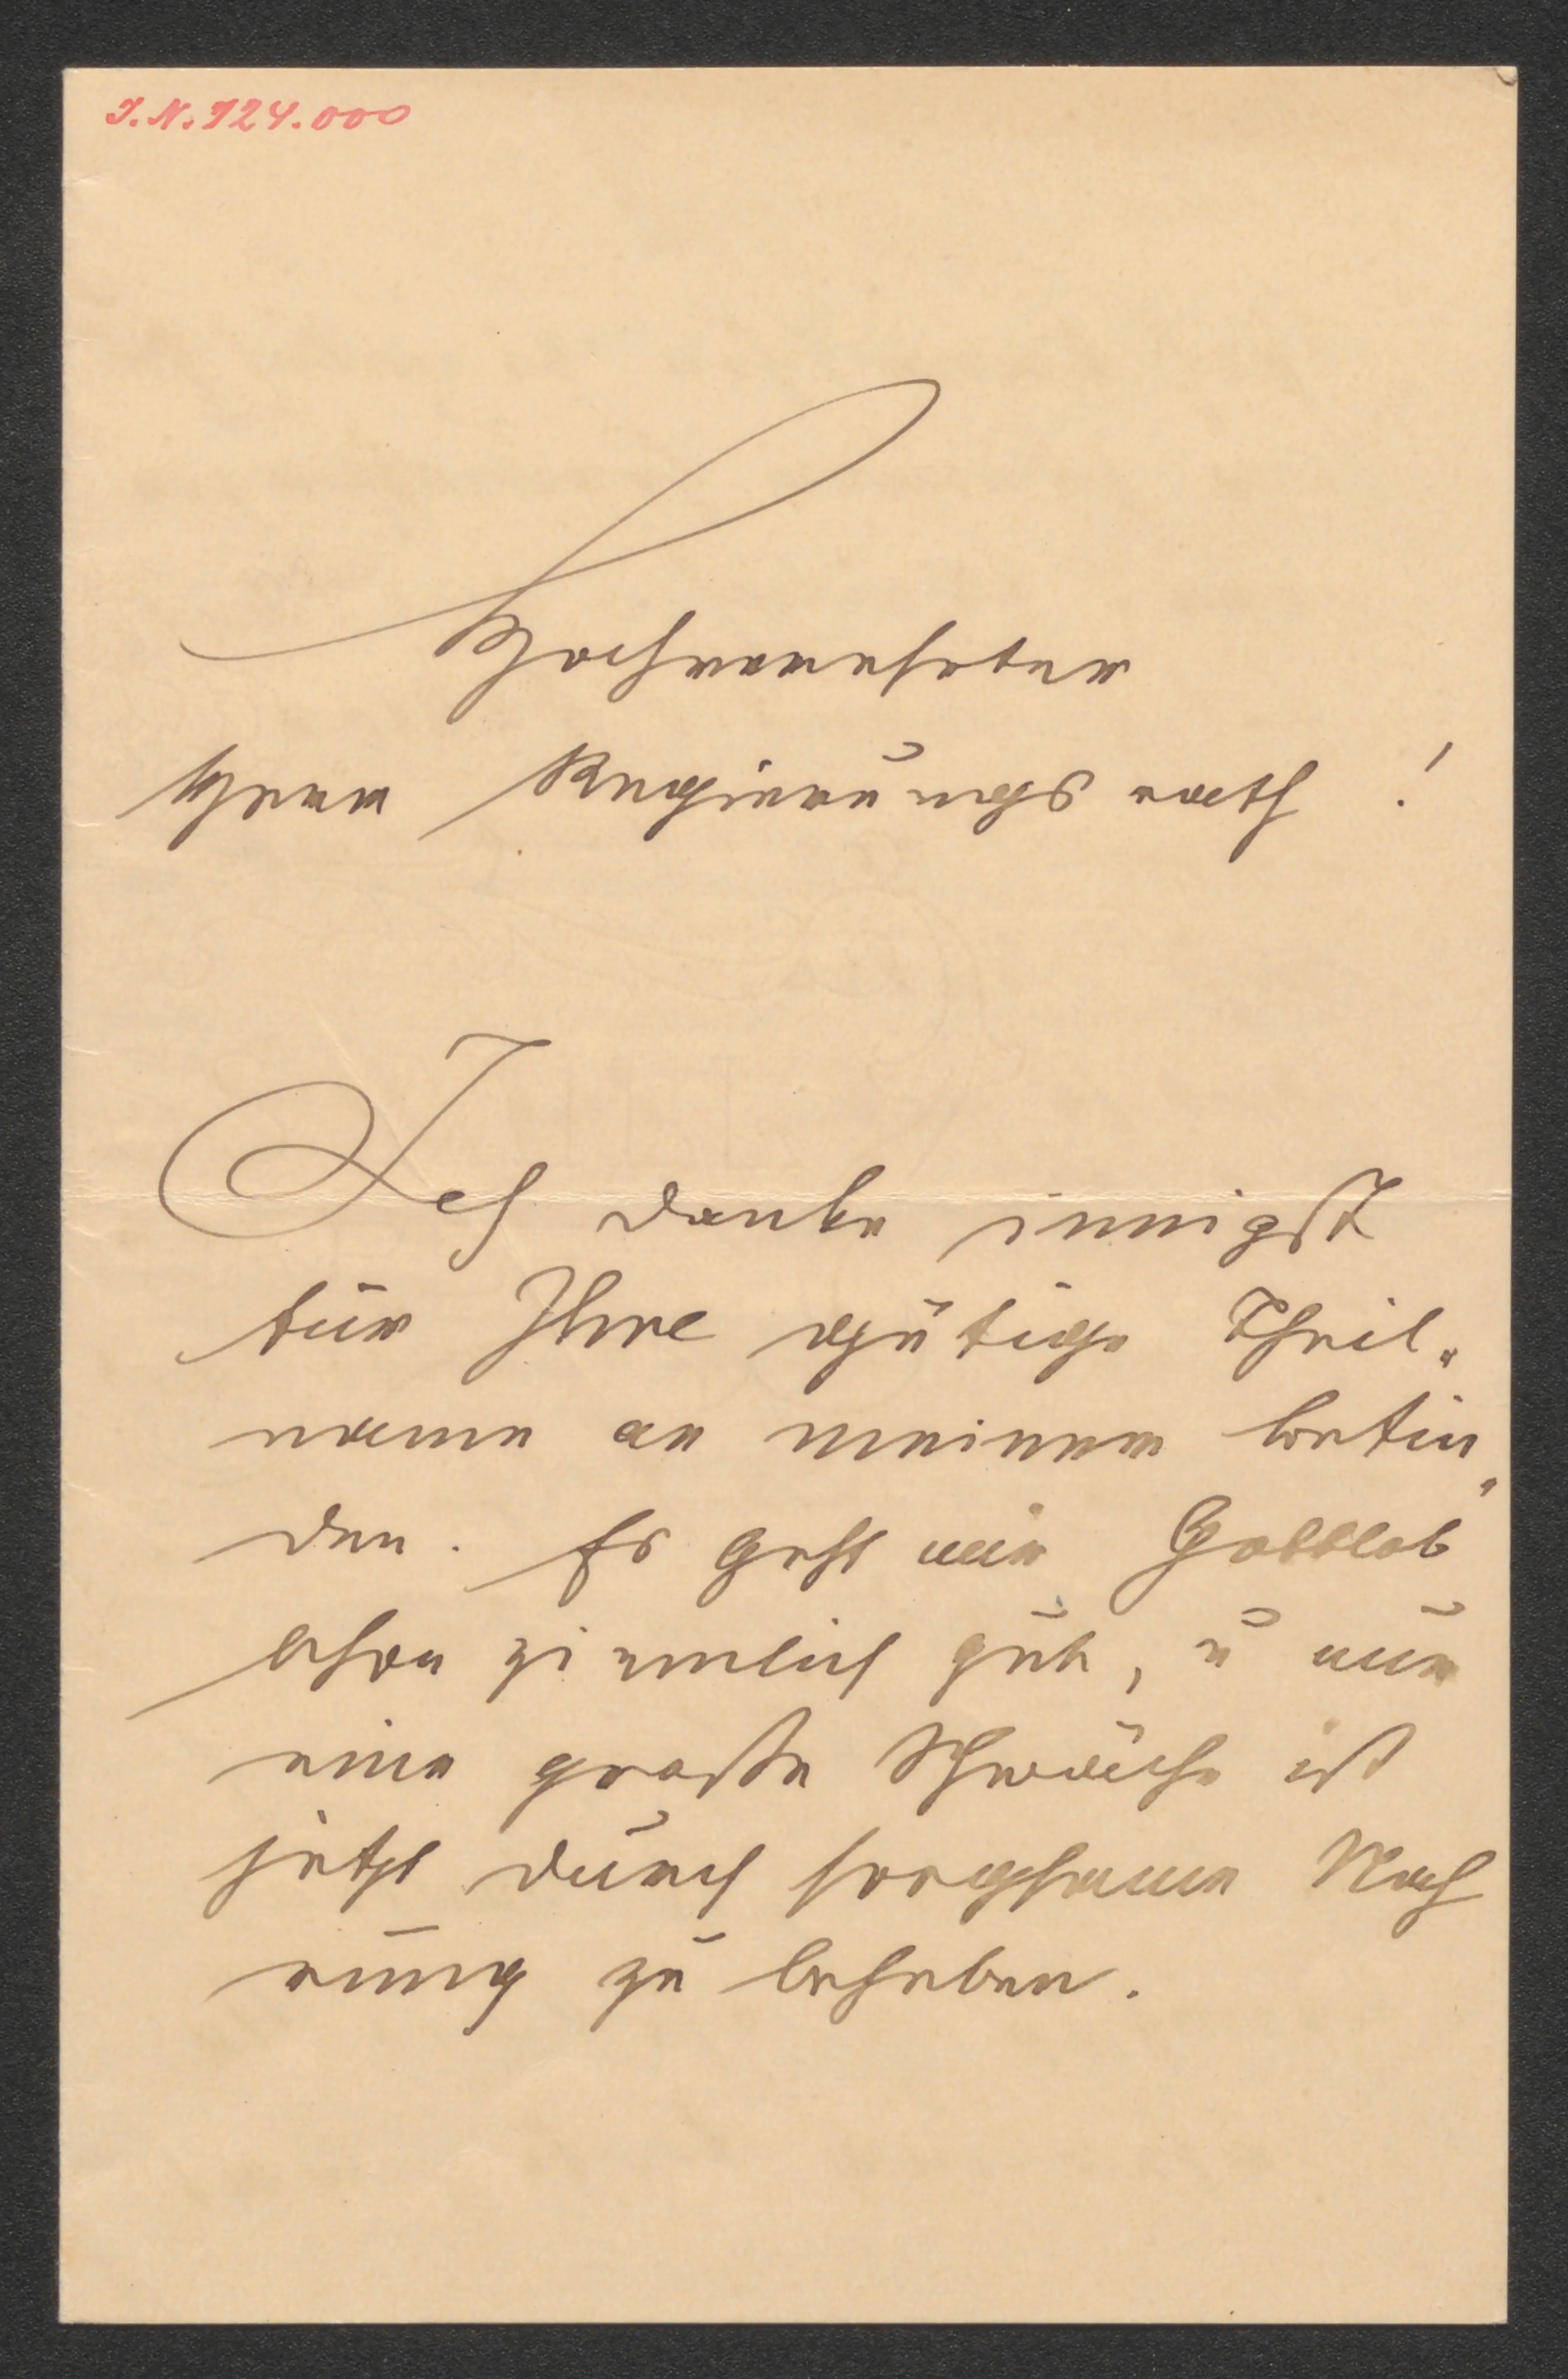 J.N. 124.000
Hochverehrter
Herr Regierungsrath !
Ich danke innigst
für Ihre gütige Theil„
name an meinem befin„
den. Es geht mir Gottlob
schon ziemlich gut, u nur
eine große Schwäche ist
jetzt durch sorgsame Nah
rung zu beheben.